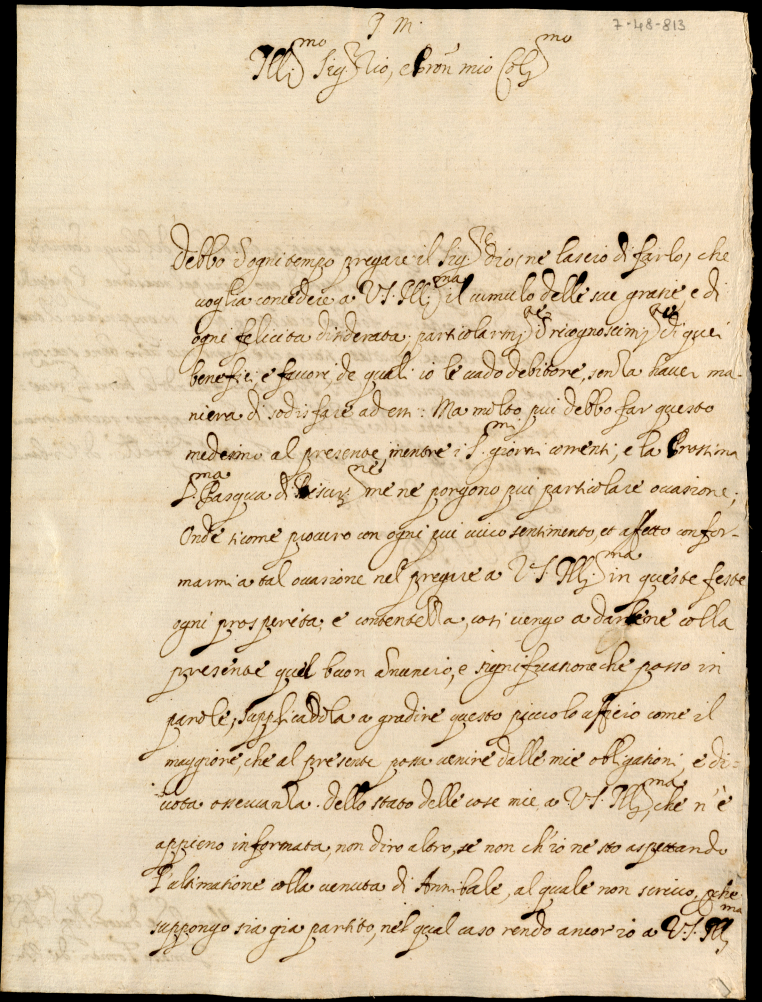 J. M.
7-48-813
Ill.mo Sig.r Zio, e Pron mio Col.mo
Debbo d'ogni tempo pregare il Sig.r Dio, ne lascio di farlo, che
voglia concedere a V.S. Ill.ma il cumulo delle sue gratie, e di
ogni felicita desiderata particolarm.te di quei
benefici, e favori, de quali io le vado debitore, senza haver ma-
niera di sodisfare ad essi: Ma molto piu debbo far questo
medesimo al presente, mentre i S.mi giorni correnti, e la Prossima
S.ma Pasqua di Resurr.ne me ne porgono piu particolare occasione;
Onde sicome procuro con ogni piu vivo sentimento, et affetto confor-
marmi a tal occasione nel pregare a V.S. Ill.ma in queste feste
ogni prosperita, e contentezza, cosi vengo a dar
colla
presente quel buon annuncio, e significatione che posso in
parole, supplicadola a gradire questo piccolo afficio come il
maggiore, che al presente possa venire dalle mie obligationi, e di-
vota osservanza. Dello stato delle cose mie, a V.S. Ill.ma, che n'è
appieno informata, non diro altro, se non ch'io ne sto aspettando
l'ultimatione colla venuta di Annibale, al quale non scrivo, pche
suppongo sia gia partito, nel qual caso rendo ancor io a V.S. Ill.ma